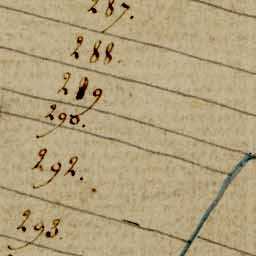 287.
288.
289
290.
292.
293.